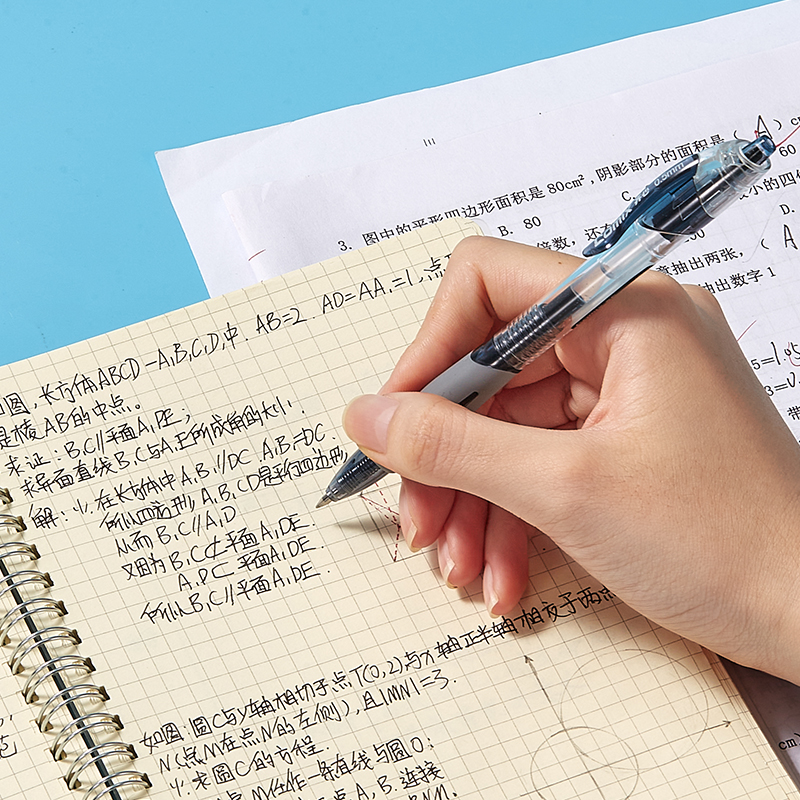 3. 图中的平形四边形面积是80cm²,阴影部分的面积是( A ) c
B. 80
C.
60
倍数,还
小的四位
D.
抽出两张,( A
抽出数字1
5=1.05
3=
带
cm)
0.5mm
如图,长方体ABCD-A₁B₁C₁D₁中.AB=2.AD=AA₁=1,点
是棱AB的中点。
求证:B₁C//平面A₁DE;
求异面直线B₁C与A₁E所成角的大小.
解:⑴.在长方体中A₁B₁//DC A₁B₁=DC.
所以四边形A₁B₁CD是平行四边形
从而B₁C//A₁D
又因为B₁C⊄平面A₁DE.
A₁D⊂平面A₁DE.
所以B₁C//平面A₁DE.
如图.圆C与y轴相切于点T(0,2)与x轴正半轴相交于两点
N(点M在点N的左侧),且|MN|=3.
⑴.求圆C的方程.
点M任作一条直线与圆O:
点A,B.连接